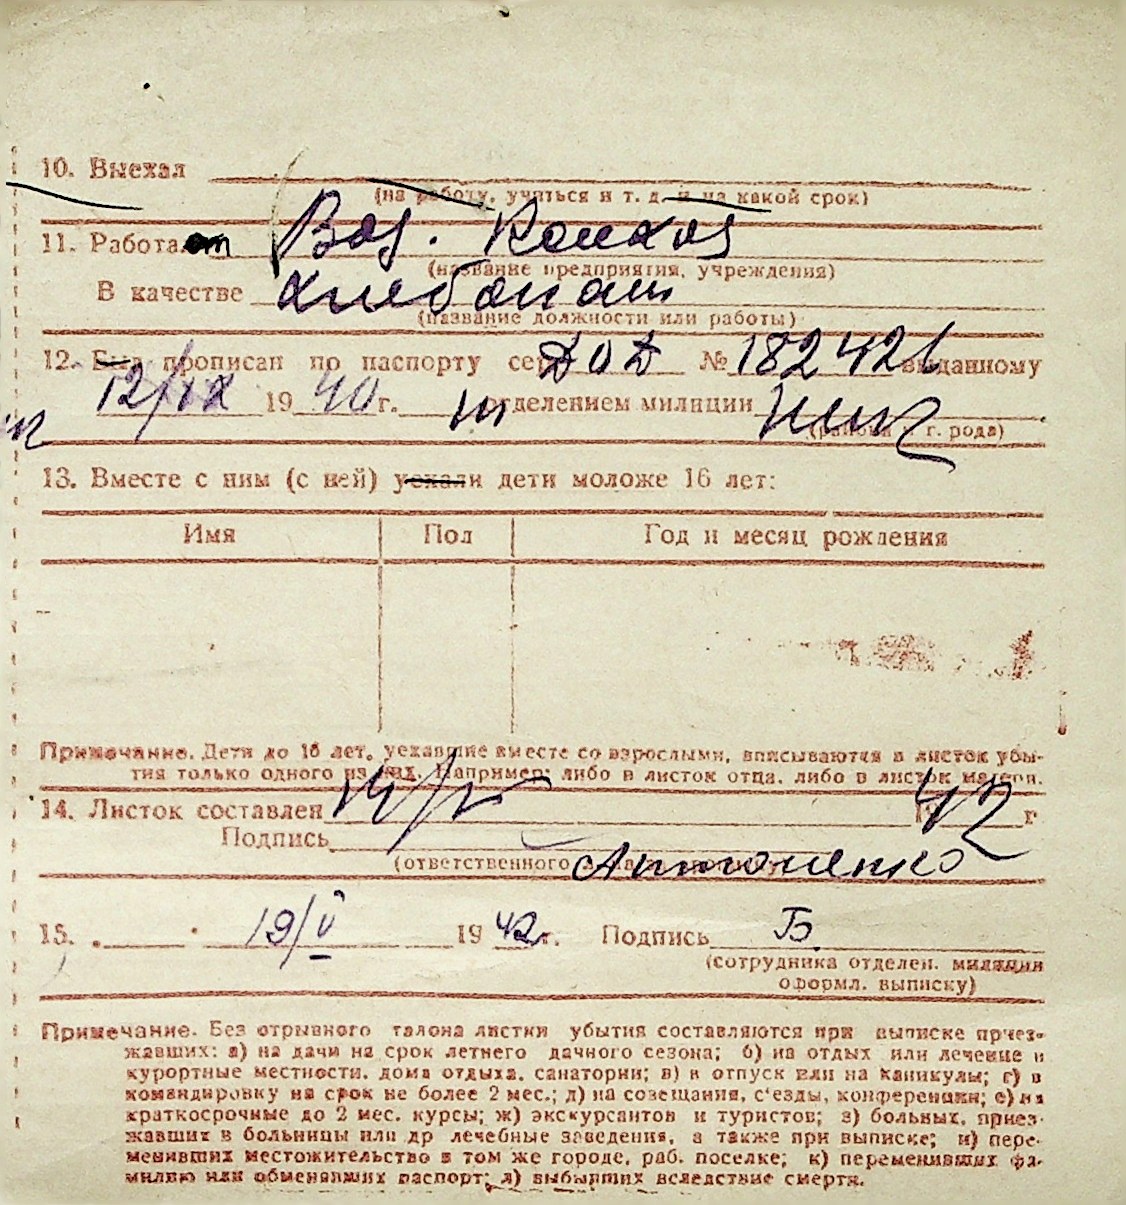 10. Выехал
(на работу, учиться и т. д. и на какой срок)
11. Работает
(название предприятия, учреждения)
В качестве
(название должности или работы)
12. Был прописан по паспорту сер № 182421 выданному
12/IX 1940 г. III отделением милиции
(района г. рода)
13. Вместе с ним (с ней) уехали дети моложе 16 лет:
Имя Пол Год и месяц рождения
Примечание. Дети до 16 лет, уехавшие вместе со взрослыми, вписываются в листок убы-
тия только одного из них. Например: либо в листок отца, либо в листок матери.
14. Листок составлен 14/V 1942 г
Подпись
(ответственного Антоненко
15. 19/V 1942г. Подпись Б
(сотрудника отделен. милиции
оформл. выписку)
Примечание. Без отрывного талона листки убытия составляются при выписке приез-
жавших: а) на дачи на срок летнего дачного сезона; б) на отдых или лечение в
курортные местности, дома отдыха, санатории; в) в отпуск или на каникулы; г) в
командировку на срок не более 2 мес.; д) на совещания, с'езды, конференции; е) на
краткосрочные до 2 мес. курсы; ж) экскурсантов и туристов; з) больных, приез-
жавших в больницы или др лечебные заведения, а также при выписке; и) пере-
менивших местожительство в том же городе, раб. поселке; к) переменивших фа-
милию или обменявших паспорт; л) выбывших вследствие смерти.